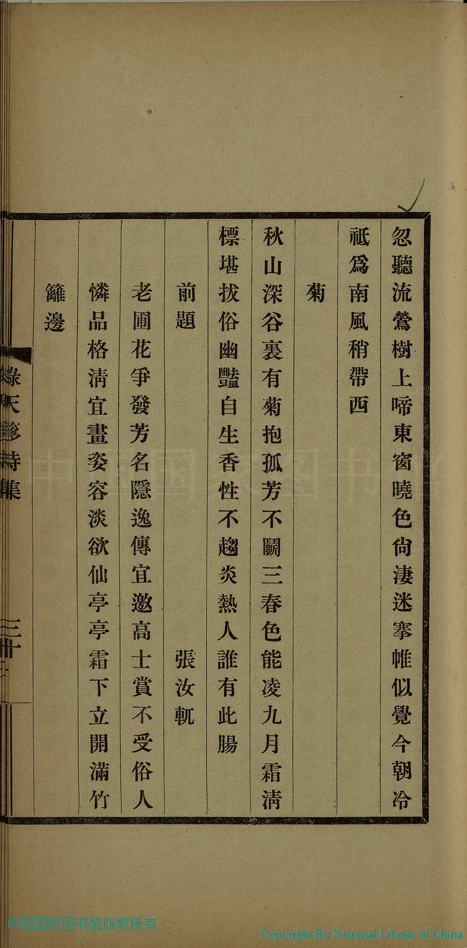 忽聽流鶯樹上啼東窗曉色尙淒迷搴帷似覺今朝冷
祗爲南風稍帶西
菊
秋山深谷裏有菊抱孤芳不鬭三春色能凌九月霜淸
標堪拔俗幽豔自生香性不趨炎熱人誰有此腸
前題 張汝軏
老圃花爭發芳名隱逸傳宜邀高士賞不受俗人
憐品格淸宜畫姿容淡欲仙亭亭霜下立開滿竹
籬邊
詩集
Copyright By National Library of China